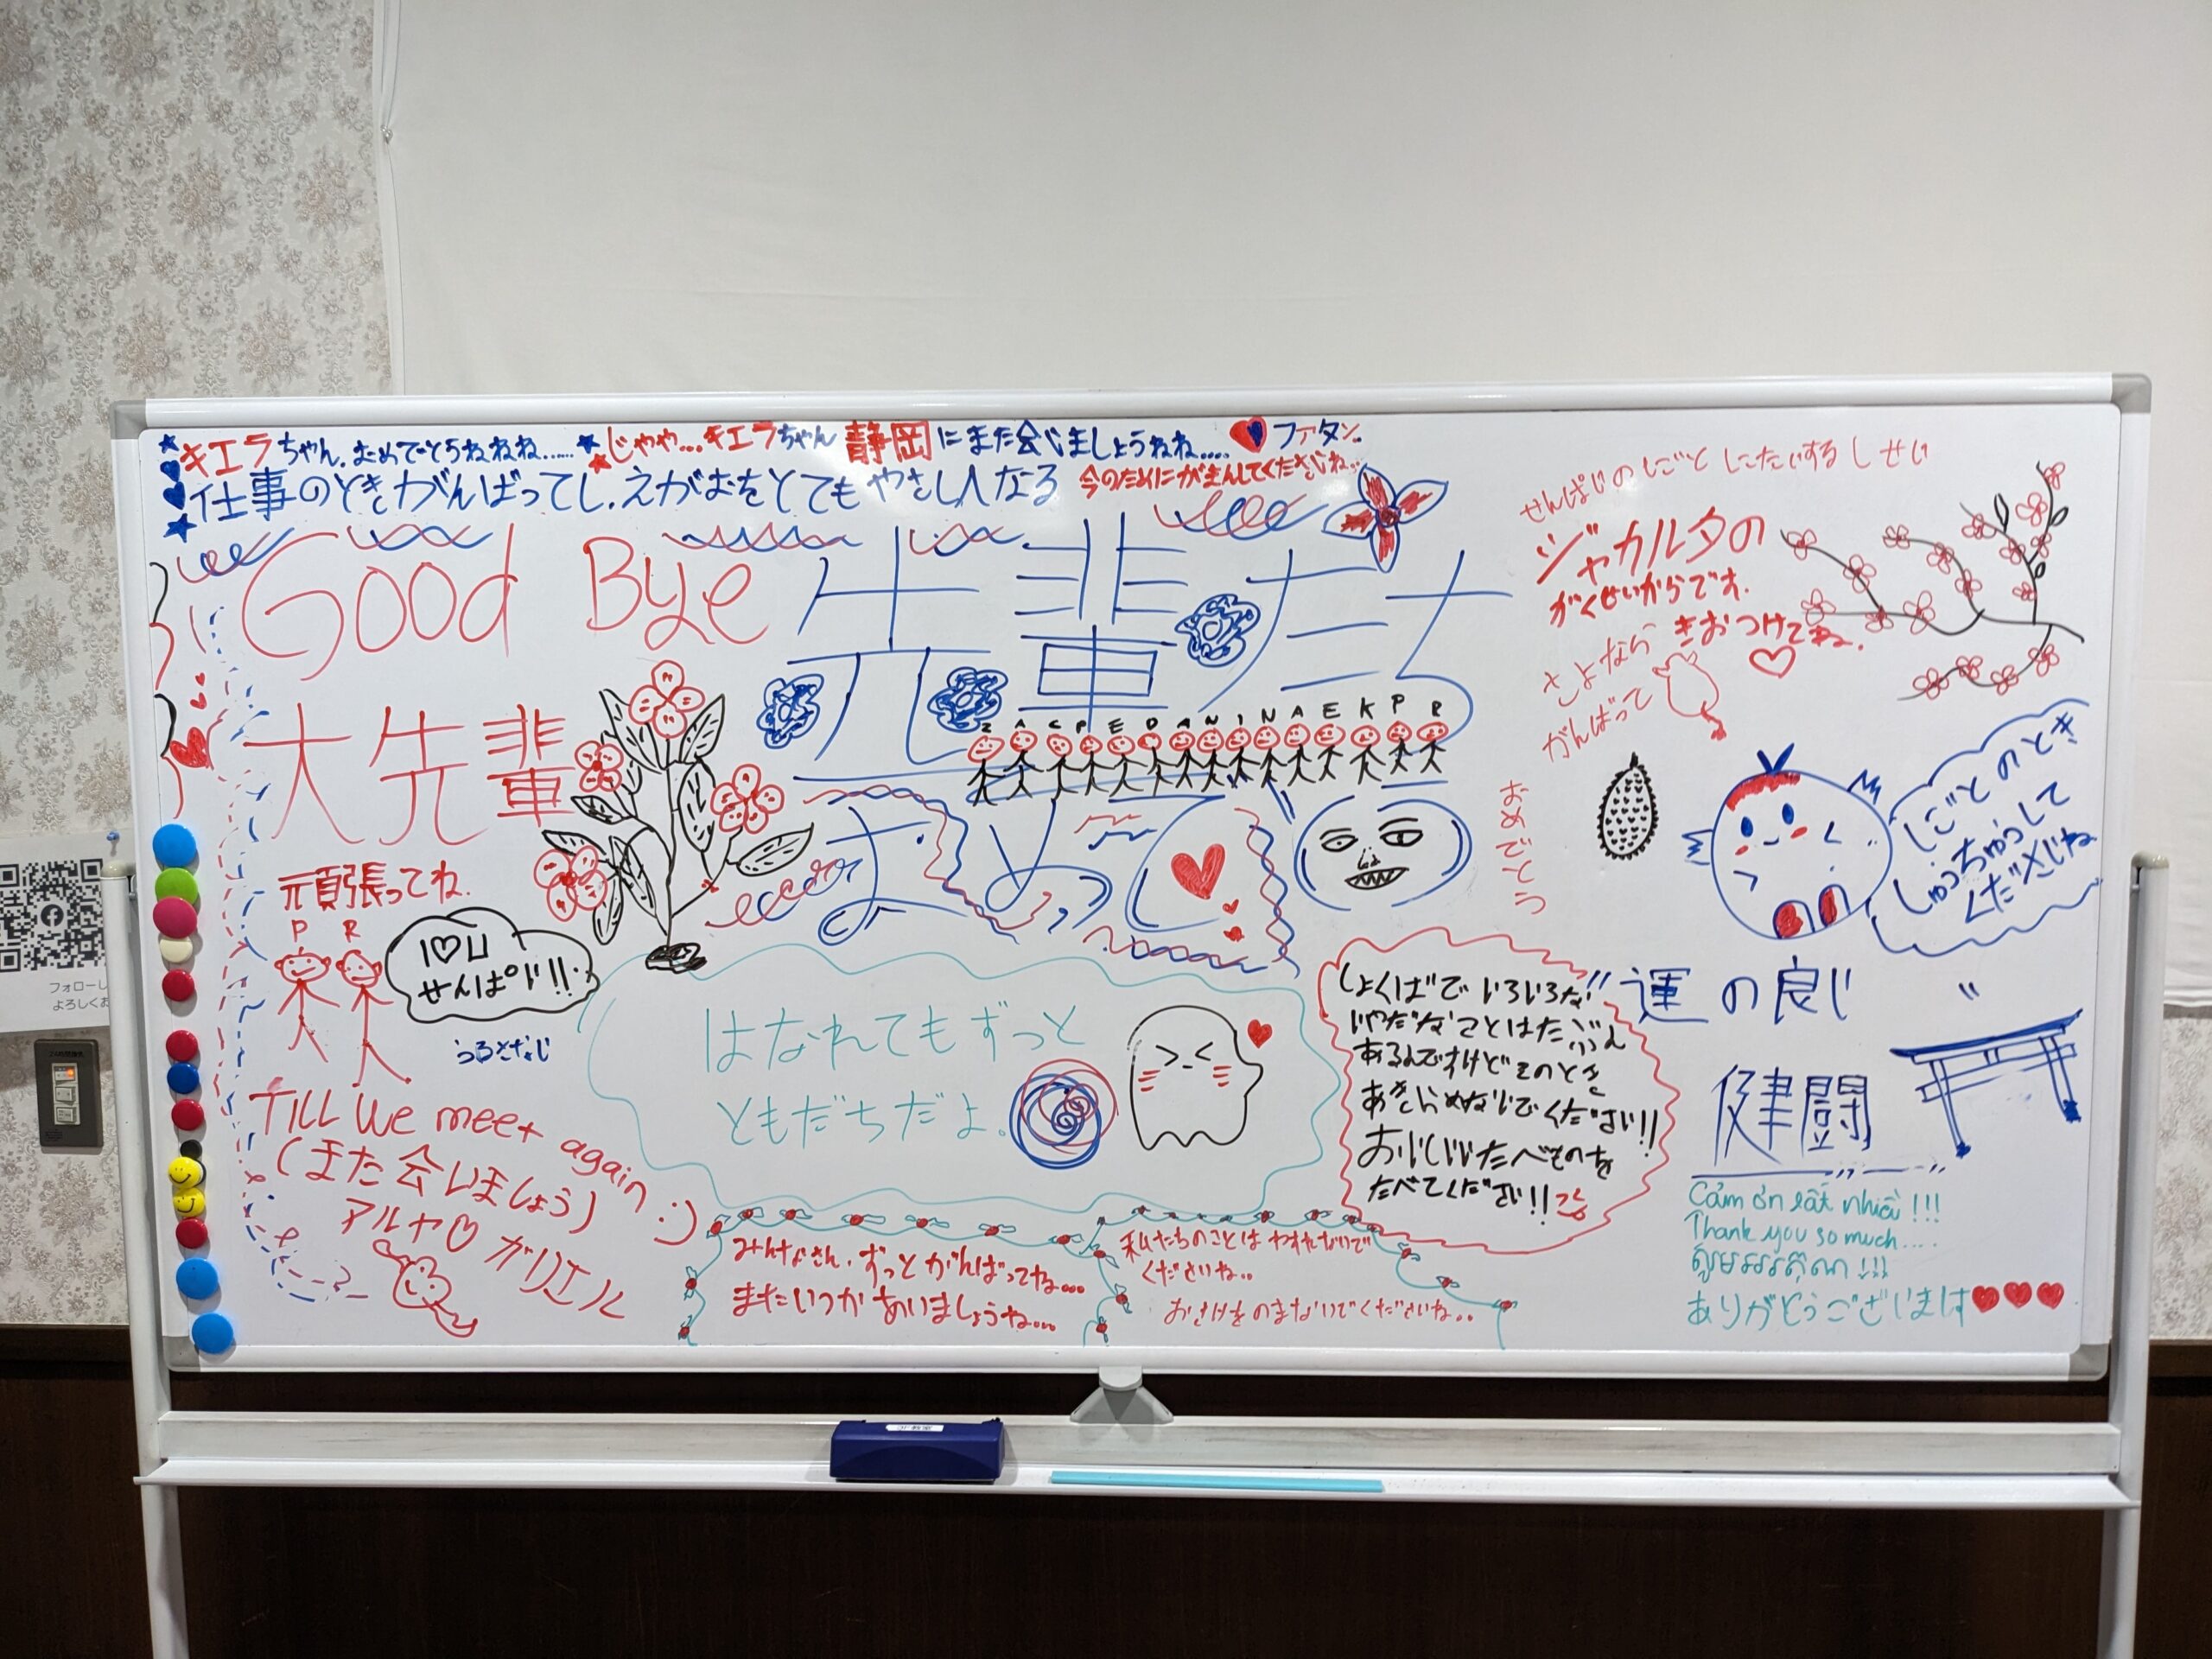 キエラちゃん、おめでとうねねね......
じゃや...キエラちゃん静岡にまた会いましょうねね.... ファタン
仕事のときがんばってし、えがおをとてもやさし人なる
今のためにがまんしてくださいね...
Good Bye 先輩たち
大先輩
頑張ってね.
P R
I♡U
せんぱい!!
うるさない
Z A C P E D A N I N A E K P R
はなれてもずっと
ともだちだよ。
TILL we meet again :)
(また会いましょう)
アルヤ♡ガリエル
みんなさん、ずっとがんばってね...
またいつかあいましょうね...
私たちのことはわすれないで
くださいね..
おさけをのまないでくださいね..
しょくばでいろいろな
いやだなことはたぶん
あるんですけどそのとき
あきらめないでください!!
おいしいたべものを
たべてください!!
せんぱいのしごと
ジャカルタの
がくせいからです.
きおつけてね.
さよなら
がんばって
おめでとう
しごとのとき
しゅうちゅうして
くださいね
"運の良い"
健闘
Cảm ơn rất nhiều !!!
Thank you so much....
ありがとうございます
フォローし
よろしくお